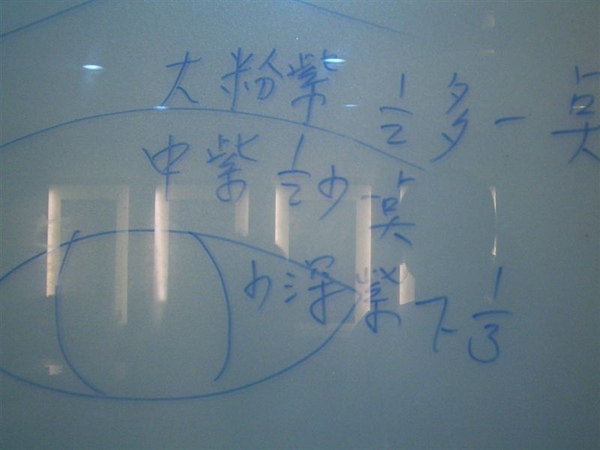 大粉紫 1/2 多一点
中紫 1/2 少一点
小深紫下 1/3